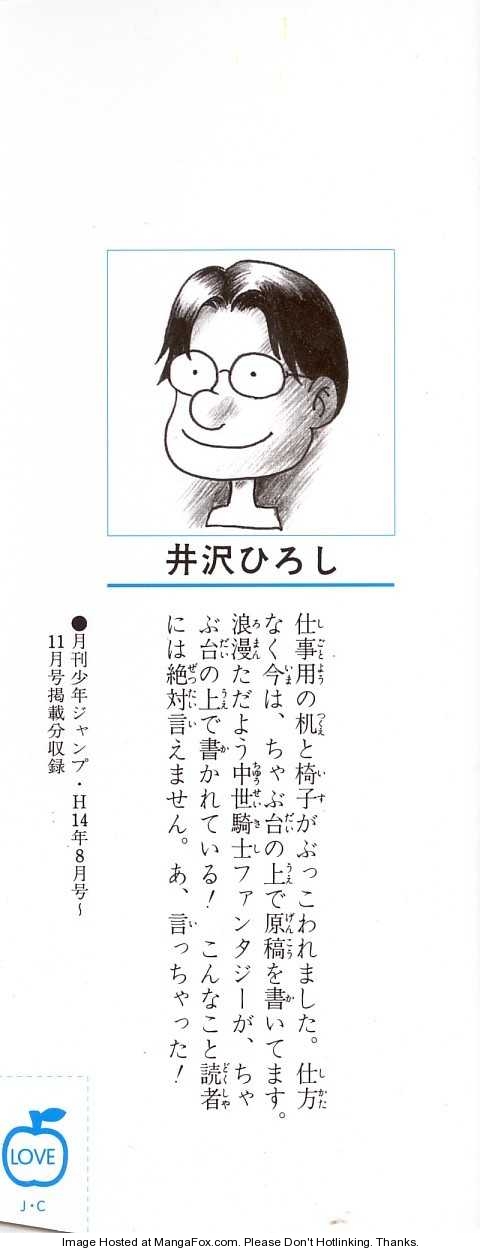 井沢ひろし
仕事用の机と椅子がぶっこわれました。仕方
なく今は、ちゃぶ台の上で原稿を書いてます。
浪漫ただよう中世騎士ファンタジーが、ちゃ
ぶ台の上で書かれている! こんなこと読者
には絶対言えません。あ、言っちゃった!
●月刊少年ジャンプ・H14年8月号~
11月号掲載分収録
LOVE
J・C
Image Hosted at MangaFox.com. Please Don't Hotlinking. Thanks.